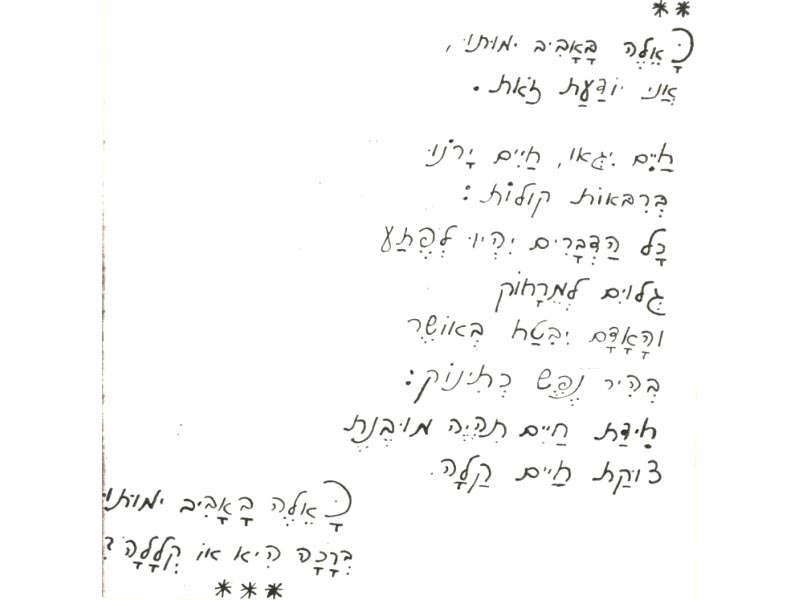 **
כָּאֵלֶּה בָּאָבִיב יָמוּתוּ,
אֲנִי יוֹדַעַת זֹאת.
חַיִּים יִגְאוּ, חַיִּים יָרֹנּוּ
בְּרִבְאוֹת קוֹלוֹת:
כָּל הַדְּבָרִים יִהְיוּ לְפֶתַע
גְּלוּיִם לְמֵרָחוֹק
וְהָאָדָם יִבְטַח בְּאוֹשֶׁר
בְּהִיר נֶפֶשׁ כְּתִינוֹק:
חִידַת חַיִּים תִּהְיֶה מוּבֶנֶת
צוּקַת חַיִּים קַלָּה.
כָּאֵלֶּה בָּאָבִיב יָמוּתוּ
בְּרָכָה הִיא אוֹ קְלָלָה?
***